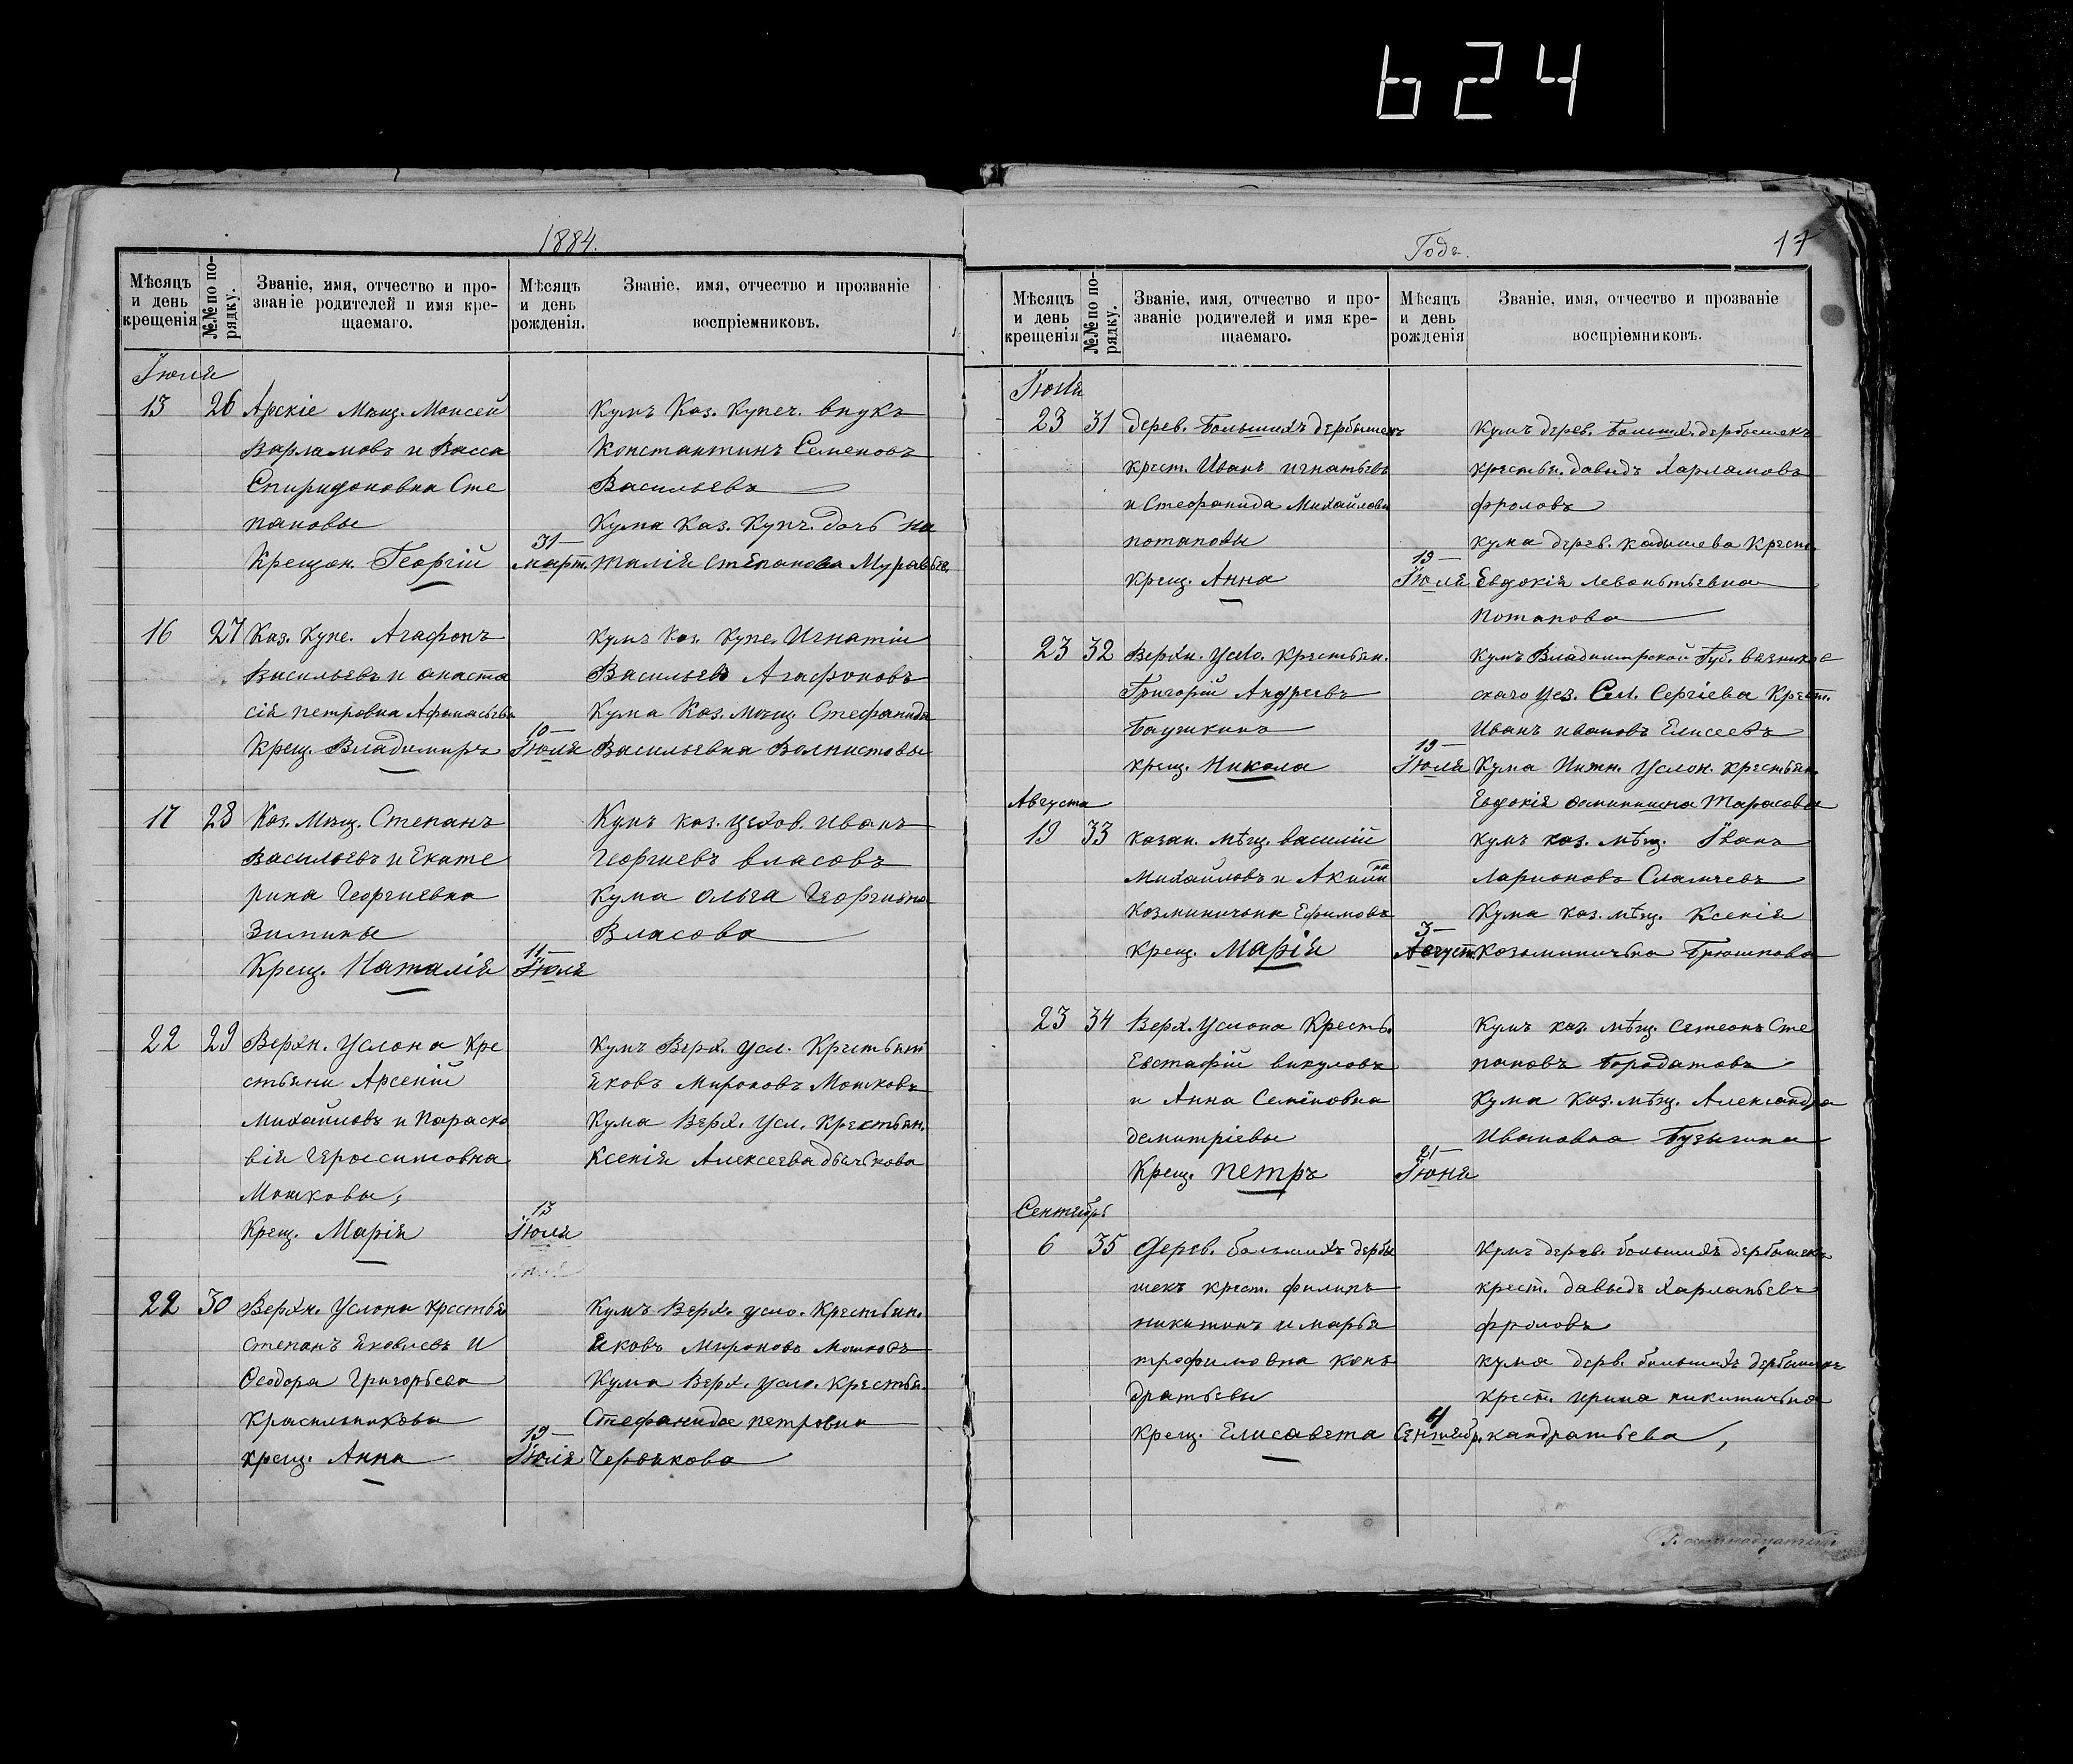 624
1884.
Мѣсяцъ и день крещенія
№№ по порядку.
Званіе, имя, отчество и прозваніе родителей и имя крещаемаго.
Мѣсяцъ и день рожденія.
Званіе, имя, отчество и прозваніе воспріемниковъ.
Іюля
13 26 Арскіе Мѣщ. Моисей
Варламовъ и Васса
Спиридоновна Сте
пановы
Крещон. Георгій
31
март.
Кумъ Каз. Купеч. внукъ
Константинъ Семеновъ
Васильевъ
Кума Каз. Купч. дочь На
талія Степанова Муравьева
16 27 Каз. Купе. Агафонъ
Васильевъ и Анаста
сія Петровна Афанасьевы
Крещ. Владимиръ
10
Іюля
Кумъ Каз. Купе. Игнатіи
Васильевъ Агафоновъ
Кума Каз. Мѣщ. Стефанида
Васильевна
17 28 Каз. Мѣщ. Степанъ
Васильевъ и Екате
рина Георгиевна
Зимины
Крещ. Наталія
11
Іюля
Кумъ каз. цехов. Иванъ
Георгиевъ Власовъ
Кума Ольга Георгиевна
Власова
22 29 Верхн. Услона Кре
стьяни Арсеній
Михайловъ и Параско
вія Герасимовна
Мошковы;
Крещ. Марія
13
Іюля
Кумъ Верх. Усл. Крестьян
Яковъ Мироновъ Мошковъ
Кума Верх. Усл. Крестьян.
Ксенія Алексеева Дьячкова
22 30 Верхн. Услона крестья
Степанъ Яковлевъ и
Ѳеодора Григорьева
Красильниковы
крещ. Анна
19
Іюля
Кумъ Верх. усло. Крестьян.
Яковъ Мироновъ Мошковъ
Кума Верх. усло. Крестья.
Стефанида Петровна
Червякова
Годъ.
17
Мѣсяцъ и день крещенія
№№ по порядку.
Званіе, имя, отчество и прозваніе родителей и имя крещаемаго.
Мѣсяцъ и день рожденія
Званіе, имя, отчество и прозваніе воспріемниковъ.
Іюля
23 31 Дерев. Большихъ Дербышекъ
крест. Иванъ Игнатьевъ
и Стефанида Михайловы
Потаповы
Крещ. Анна
19
Іюля
Кумъ дерев. Больших. дербышекъ
крестьян. Давидъ Харламовъ
Фроловъ
Кума дерев. Кадышева Крестн
Евдокія Леваньтьевна
Потапова
23 32 Верхн. Усло. Крестьян.
Григорій Андреевъ
Баушкинъ
крещ. Никола
19
Іюля
Кумъ Владимирской Губ. Вазников
скаго уез. Сел. Сергіева Крест.
Иванъ Ивановъ Елисеевъ
Кума Нижн. Услон. крестьян.
Евдокія Тарасова
Августа
19 33 Казан. мѣщ. Василій
Михайловъ и Акили
на
Козминична Ефимовы
крещ. Марія
3
Август.
Кумъ каз. мѣщ. Іванъ
Ларионовъ
Кума каз. мѣщ. Ксенія
Козьминичьна Брюшкова
23 34 Верх. Услона Кресть.
Евстафій Викуловъ
и Анна Семёновна
Демитріевы
Крещ. Петръ
21
Іюня
Кумъ каз. мѣщ. Семеонъ Сте
пановъ Бородатовъ
Кума каз. мѣщ. Александра
Ивановна Бузыгина
Сентябрь
6 35 Дерев. большихъ дербы
шекъ крест. Филипъ
Никитинъ и Марья
Трофимовна Конъ
дратьевы
Крещ. Елисавета
4
Сентябр.
Кумъ дерев. большихъ дербышекъ
крест. Давыдъ Харлапьевъ
Фроловъ
кума дерв. большихъ дербышекъ
крест. Ирина Никитичьна
Кандратьева,